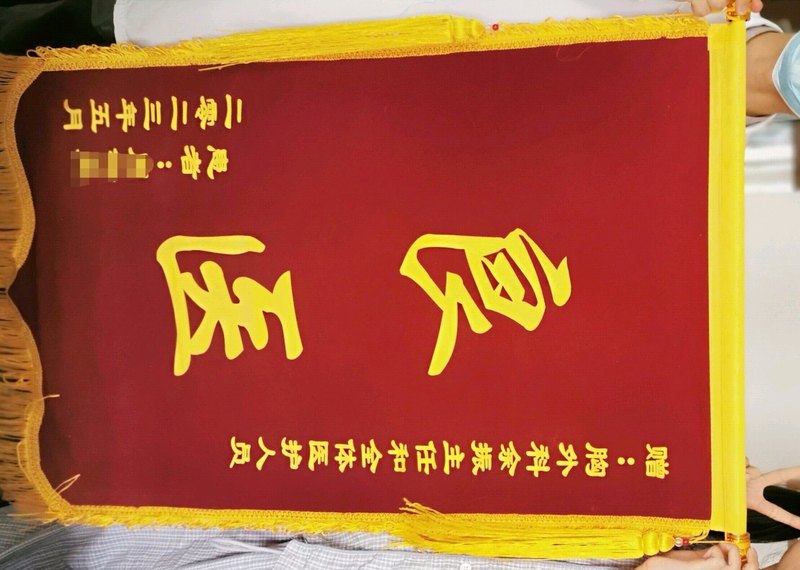 赠：胸外科余振主任和全体医护人员
良医
患者：
二零二三年五月